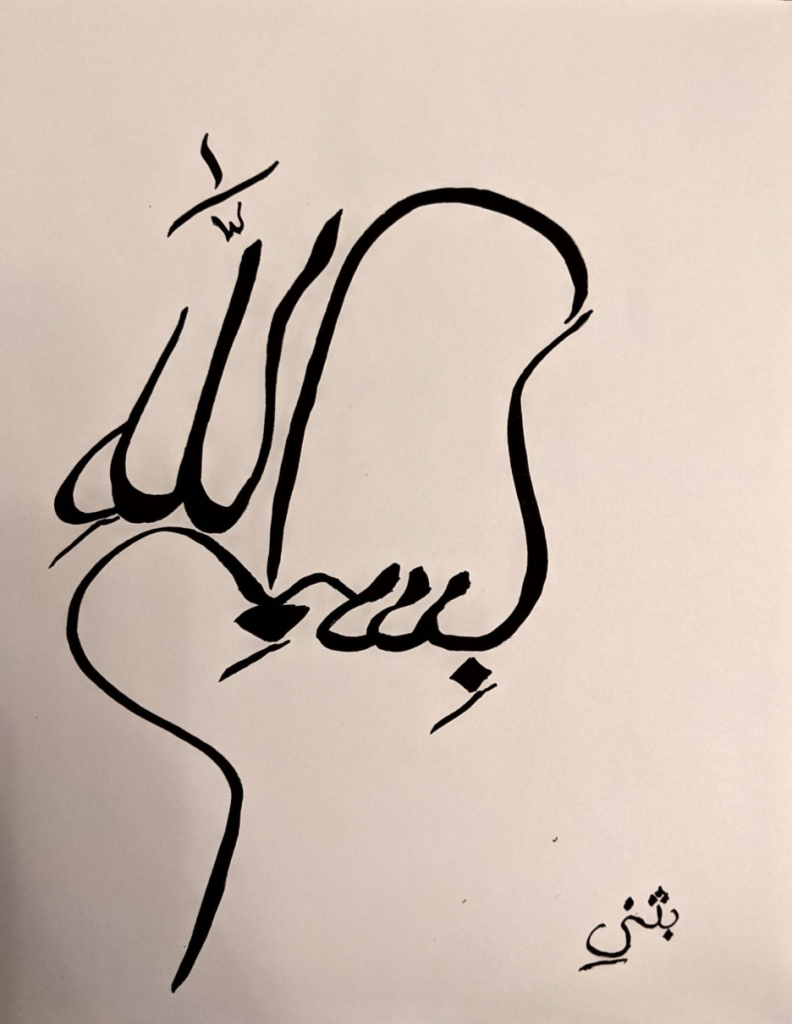 بِسمِ اللّٰهِ
بثني